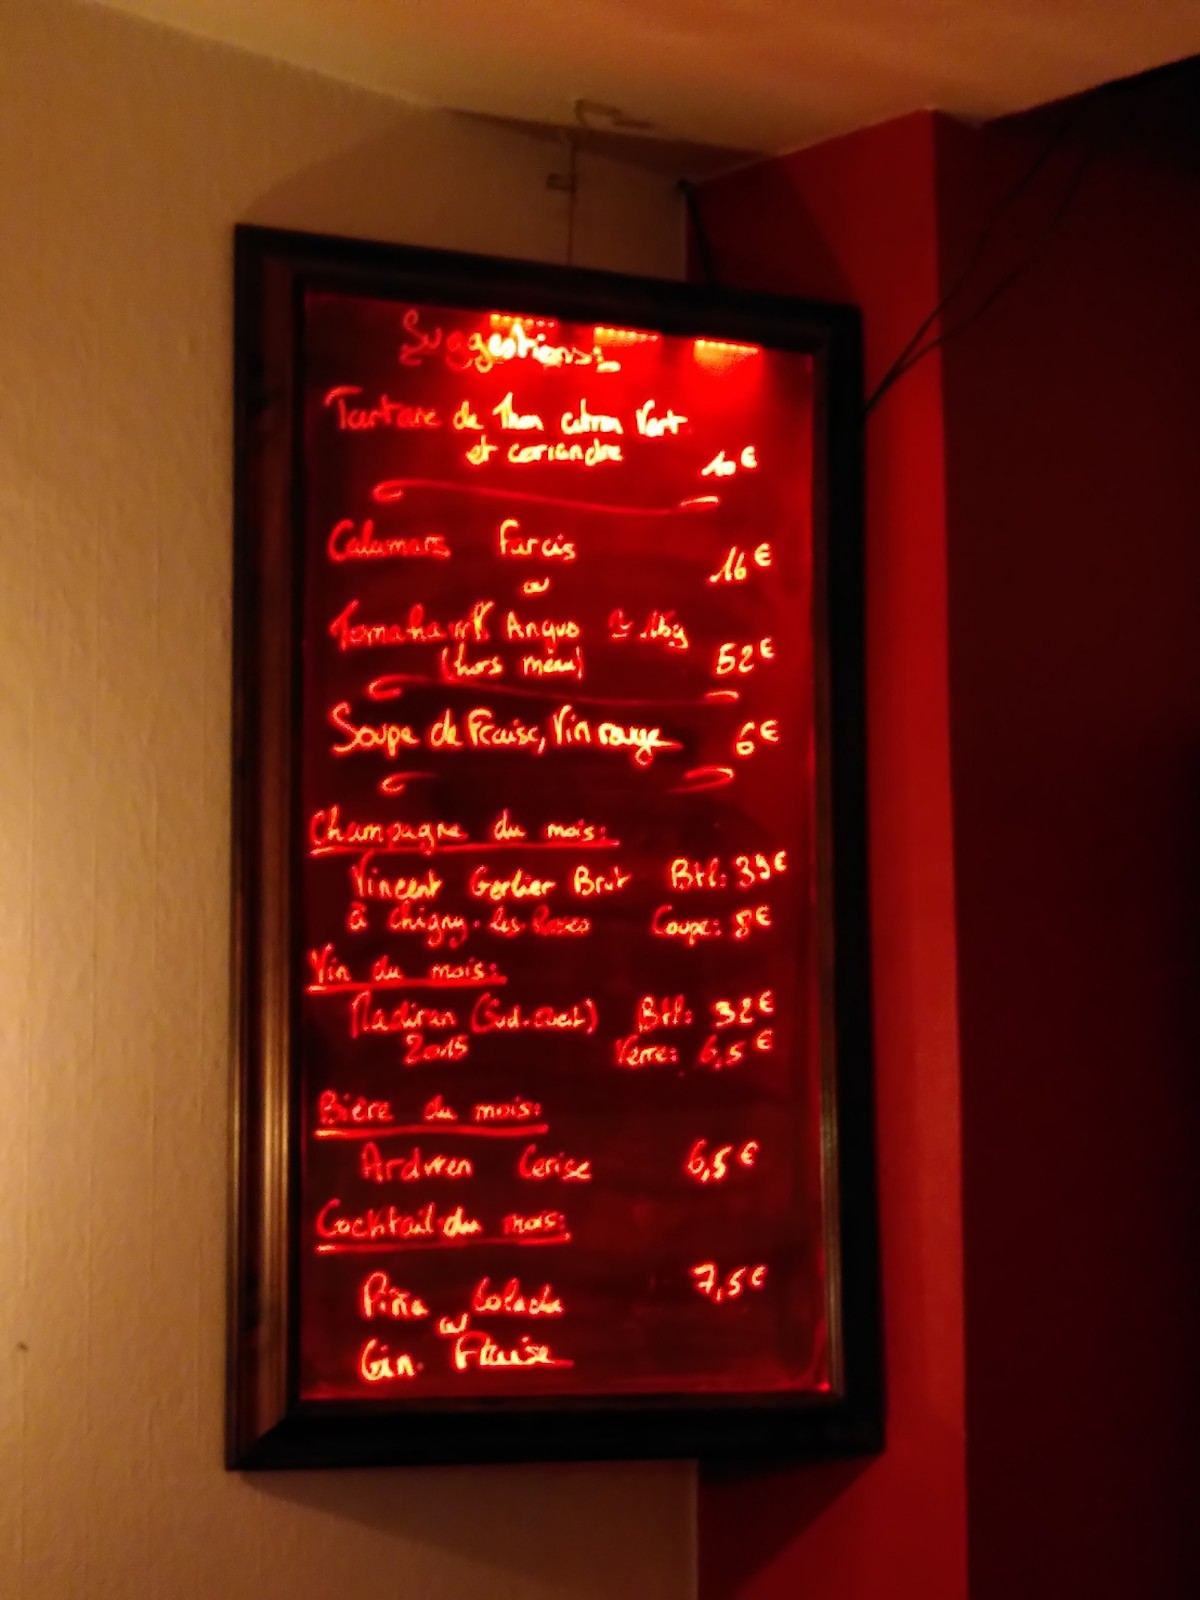 Suggestions:
Tartare de Thon citron Vert
et coriandre 10€
Calamars Farcis 16€
ou
Tomahawk Angus
(hors menu) 52€
Soupe de Fraise, Vin rouge 6€
Champagne du mois:
Vincent Brut Btl: 39€
à Chigny-les-Roses Coupe: 8€
Vin du mois:
Madiran (Sud-ouest) Btl: 32€
2015 Verre: 6,5€
Bière du mois:
Ardwen Cerise 6,5€
Cocktail du mois:
7,5€
Piña Colada
ou
Gin Fraise